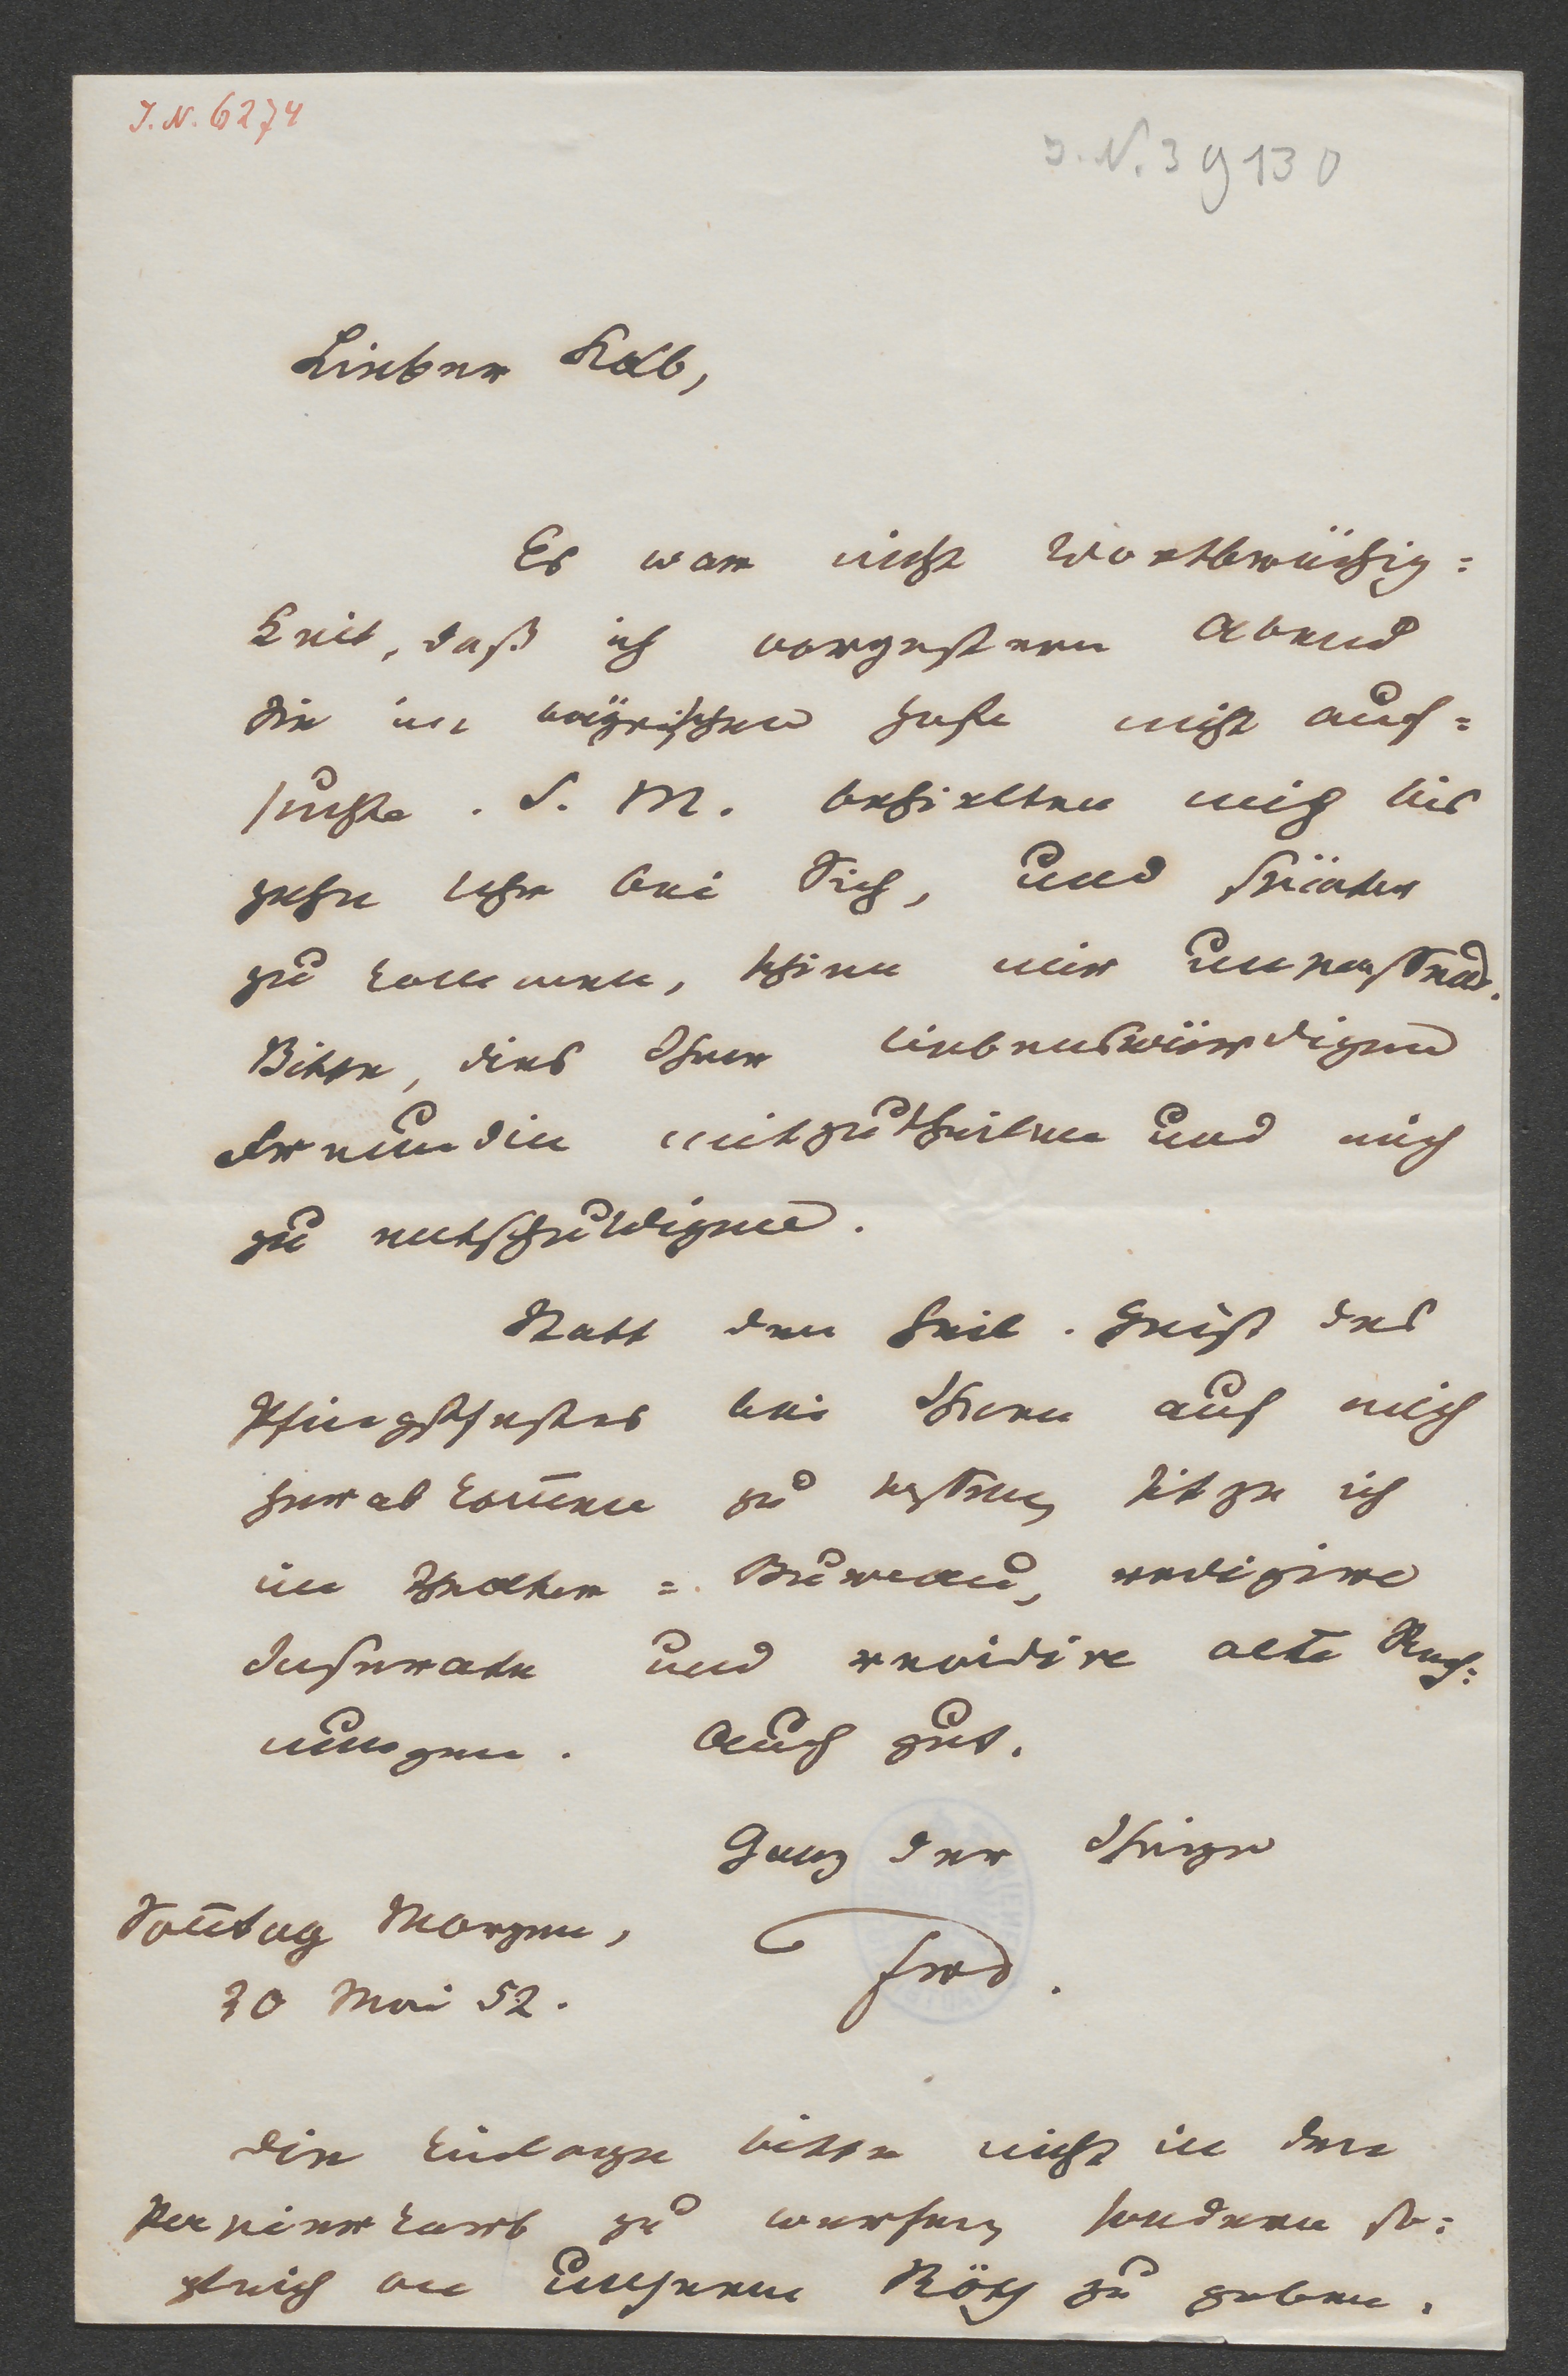 J. N. 6274
J. N. 39130
Lieber Kolb,
Es war nicht Wortbrüchig=
keit, daß ich vorgestern Abend
Sie im bayrischen Hofe nicht auf=
suchte. S. M. behielten mich bis
zehn Uhr bei Sich, und später
zu kommen, schien mir unpassend.
Bitte, dies Ihrer liebenswürdigen
Freundin mitzutheilen und mich
zu entschuldigen.
Statt den heil. Geist des
Pfingstfestes bei Ihnen auf mich
herabkom̅en zu lassen, sitze ich
im Theater=Büreau, redigire
Inserate und revidire alte Rech=
nungen. Auch gut.
Ganz der Ihrige
Son̅tag Morgen,
Frd.
30 Mai 52.
Die Einlage bitte nicht in den
Papierkorb zu werfen, sondern so=
gleich an unseren zu geben.